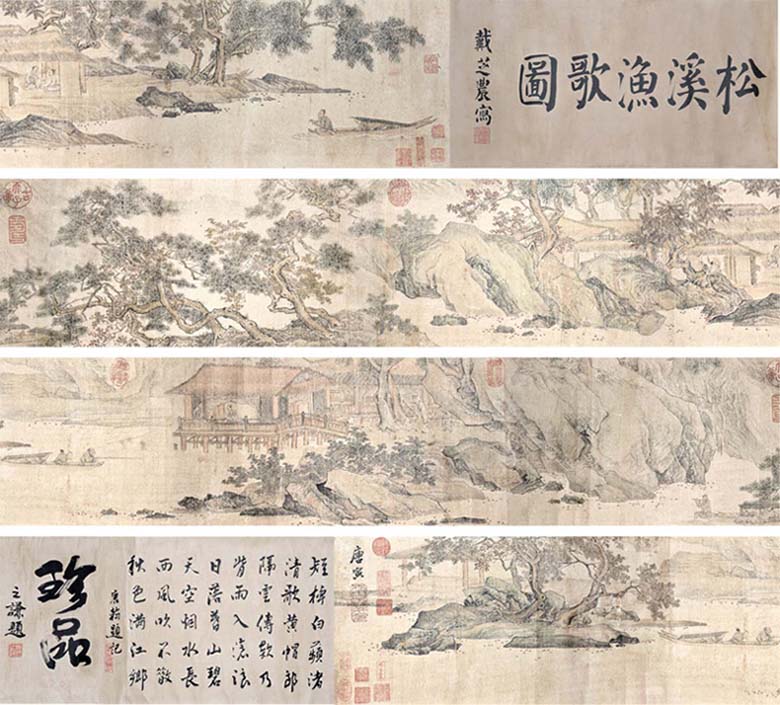 松溪漁歌圖
戴芝農寫
唐寅
短棹白蘋渚
清歌黃帽郎
隔雲傳欸乃
背雨入滄浪
日落暮山碧
天空烟水長
西風吹不散
秋色滿江鄉
唐翰題記
珍品
之謙題